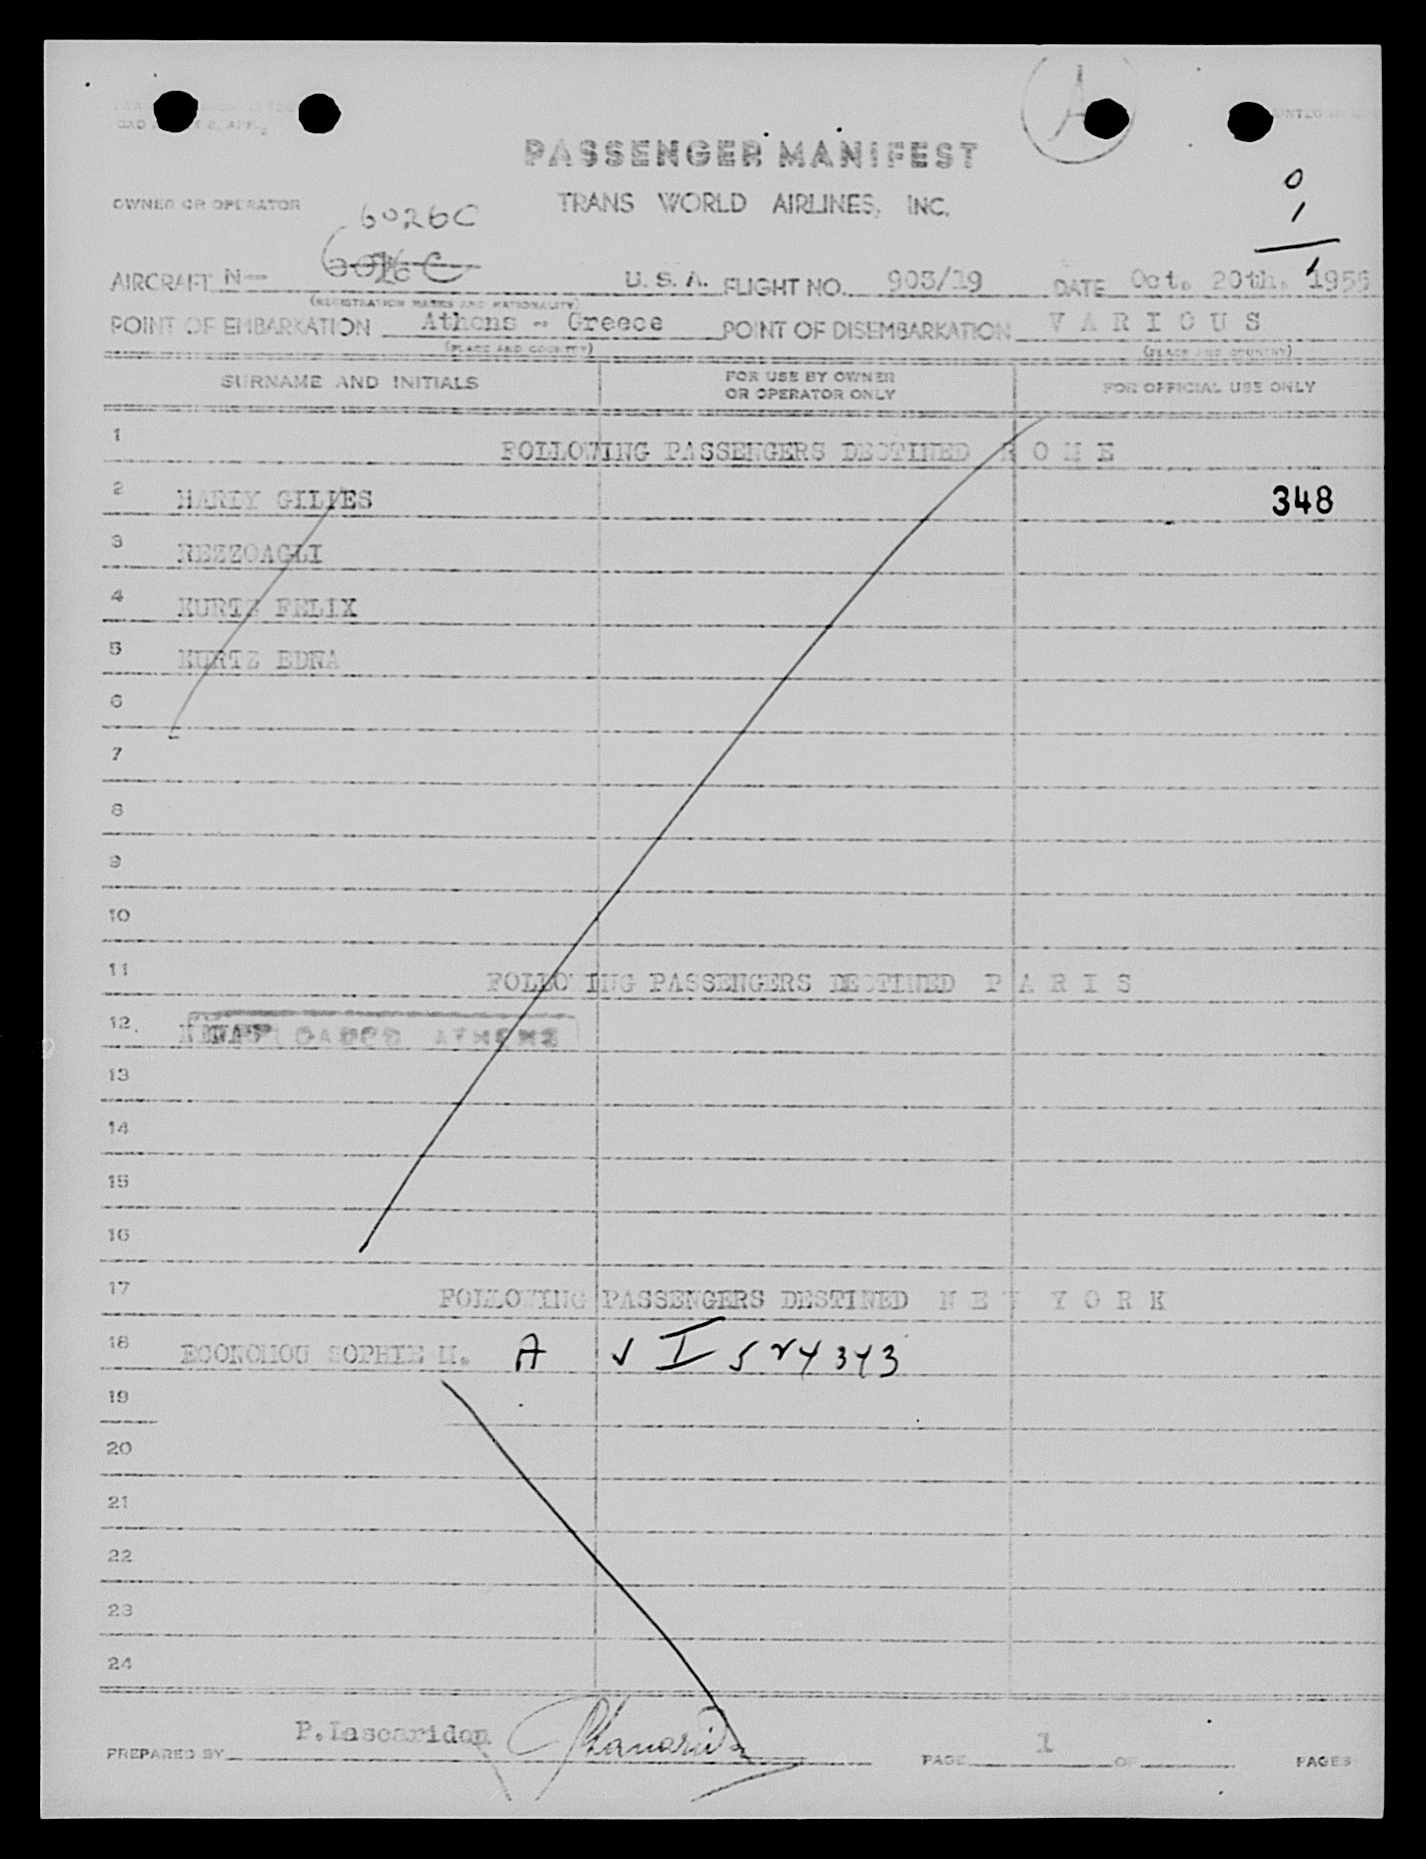 A
PASSENGER MANIFEST
0
OWNER OR OPERATOR TRANS WORLD AIRLINES, INC.
6026C
1
1
AIRCRAFT N— U. S. A. FLIGHT NO. 903/19 DATE Oct. 20th, 1956
(REGISTRATION MARKS AND NATIONALITY)
POINT OF EMBARKATION Athens - Greece POINT OF DISEMBARKATION V A R I O U S
(PLACE AND COUNTRY) (PLACE AND COUNTRY)
SURNAME AND INITIALS FOR USE BY OWNER OR OPERATOR ONLY FOR OFFICIAL USE ONLY
1 FOLLOWING PASSENGERS DESTINED R O M E
2 GILLES 348
3 REZZOAGLI
4 KURTZ FELIX
5 KURTZ EDNA
6
7
8
9
10
11 FOLLOWING PASSENGERS DESTINED P A R I S
12. ATHENS
13
14
15
16
17 FOLLOWING PASSENGERS DESTINED N E W Y O R K
18 ECONOMOU SOPHIE M. A √ I 524343
19
20
21
22
23
24
PREPARED BY P. Lascaridou PAGE 1 OF PAGES